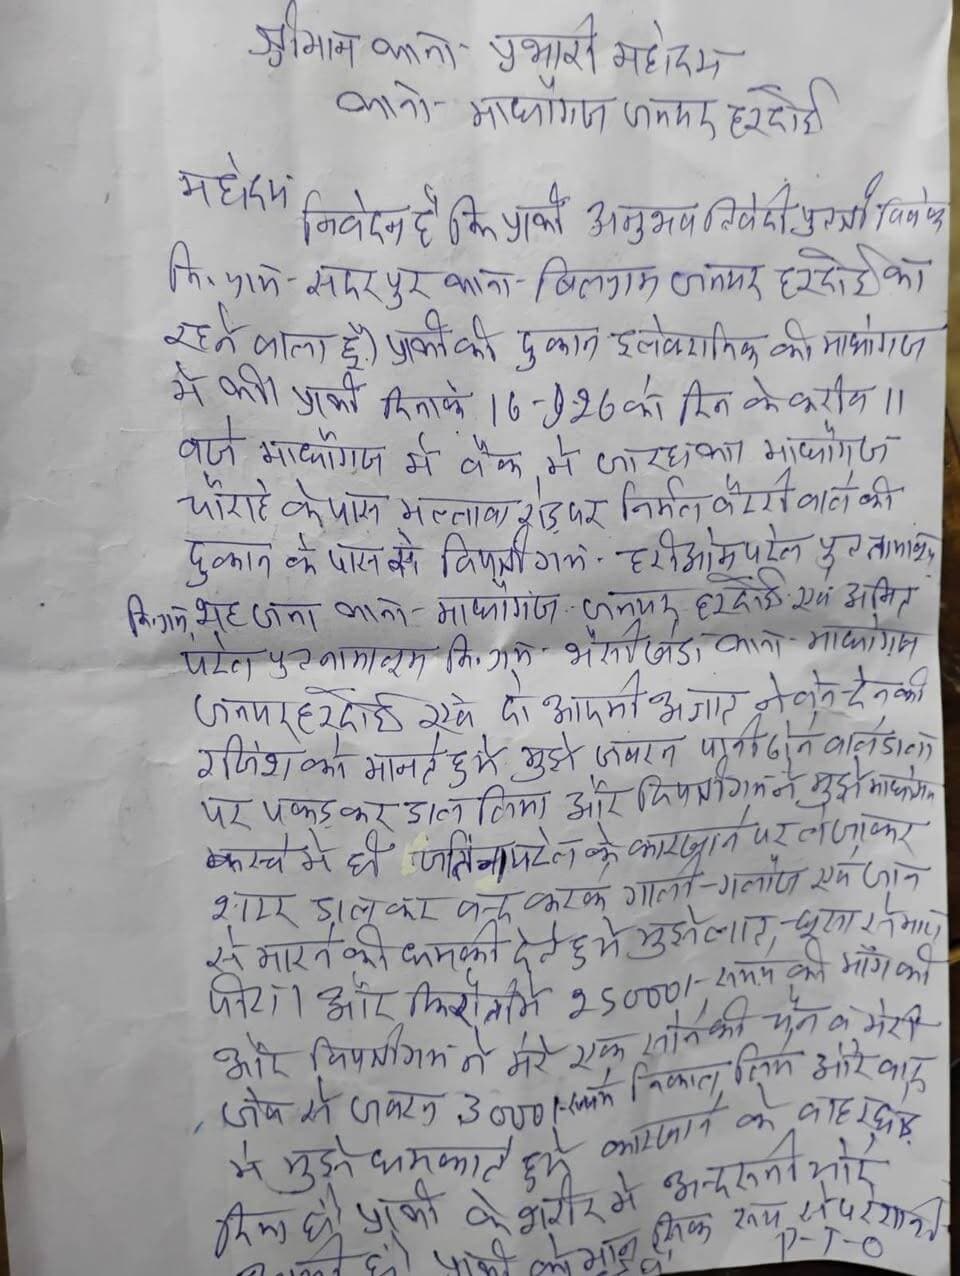 श्रीमान थाना- प्रभारी महोदय
थाना- माधौगंज जनपद हरदोई
महोदय
निवेदन है कि प्रार्थी अनुभव त्रिवेदी पुत्र श्री विवेक
नि. ग्राम- सदरपुर थाना- बिलग्राम जनपद हरदोई का
रहने वाला हूँ। प्रार्थी की दुकान इलेक्ट्रानिक की माधौगंज
में थी। प्रार्थी दिनांक 16-9-26 को दिन के करीब 11
बजे माधौगंज में बैंक में जा रहा था माधौगंज
चौराहे के पास मल्लावां रोड पर निर्मल बैटरी वाले की
दुकान के पास से विपक्षीगण- हरीओम पटेल पुत्र नामालूम
नि. ग्राम शहजना थाना- माधौगंज जनपद हरदोई एवं अमित
पटेल पुत्र नामालूम नि. ग्राम- थाना- माधौगंज
जनपद हरदोई एवं दो आदमी अज्ञात ने लेन-देन की
रंजिश को मानते हुये मुझे जबरन पानी ढोने वाले डाला
पर पकड़कर डाल लिया और विपक्षीगण ने मुझे माधौगंज
कस्बे में ही पटेल के कारखाने पर ले जाकर
शटर डालकर बन्द करके गाली-गलौज एवं जान
से मारने की धमकी देते हुये मुझे लात, घूसा से मारा
पीटा। और फिरौती में 25000/- रूपये की माँग की
और विपक्षीगण ने मेरे एक सोने की चैन व मेरी
जेब से जबरन 3000/-रूपये निकाल लिये और बाद
में मुझे धमकाते हुये कारखाने के बाहर छोड़
दिया है। प्रार्थी के शरीर में अन्दरूनी चोटें
है। प्रार्थी को मानसिक रूप से परेशानी
P-T-O